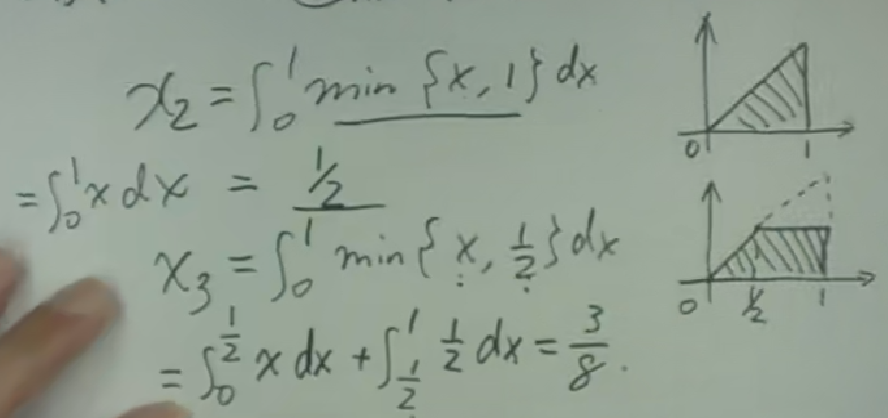 x₂ = ∫₀¹ min {x, 1} dx
= ∫₀¹ x dx = 1/2
x₃ = ∫₀¹ min{x, 1/2} dx
= ∫₀^{1/2} x dx + ∫_{1/2}^1 1/2 dx = 3/8.
0 1
0 1/2 1